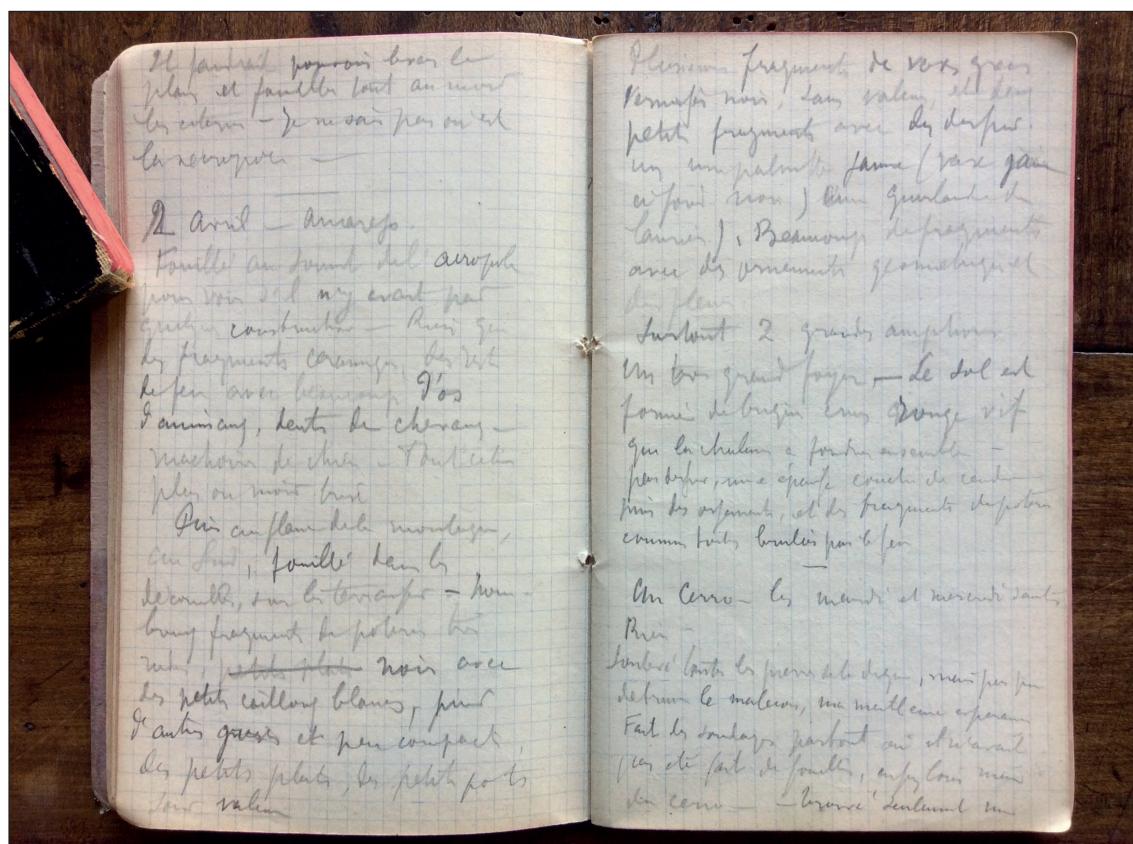 Il faudrait pouvoir lever le
plan et fouiller tout au moins
les citernes – Je ne sais pas où est
la nécropole —
2 avril – Amarejo.
Fouillé au sommet de l'acropole
pour voir s'il n'y avait pas
quelque construction – Rien que
des fragments céramiques, des
de feu avec beaucoup d'os
d'animaux, dents de chevaux –
machoires de chien – Tout cela
plus ou moins brisé
Puis au flanc de la montagne,
au Sud, fouillé dans les
décombres, sur les terrasses – Nom-
breux fragments de poteries très
noir avec
des petits cailloux blancs, puis
d'autres grises et peu compactes,
des petits plats, des petits pots
sans valeur
Plusieurs fragments de vases grecs
vernissés noirs, sans valeur, et deux
petits fragments avec des dessins.
un une palmette jaune (vase
à fond noir) une guirlande de
laurier), Beaucoup de fragments
avec des ornements géométriques et
des fleurs
Surtout 2 grandes amphores
Un très grand foyer — Le sol est
formé de briques crues rouge vif
que la chaleur a fondues ensemble –
par dessus, une épaisse couche de cendre
puis des ossements, et des fragments de poteries
comme toutes brulées par le feu
Au Cerro – les mardi et mercredi saints
Rien –
Soulevé toutes les pierres de la, mais pas pu
détruire le, ma meilleure espérance
Fait des sondages partout où il n'avait
pas été fait de fouilles,
du cerro – – trouvé seulement un